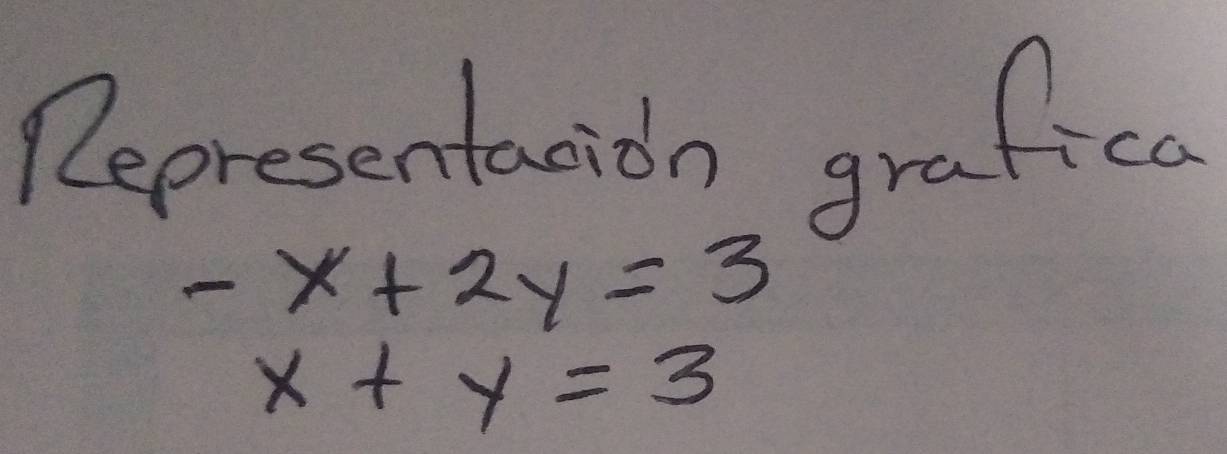 Representación grafica
- x + 2y = 3
x + y = 3